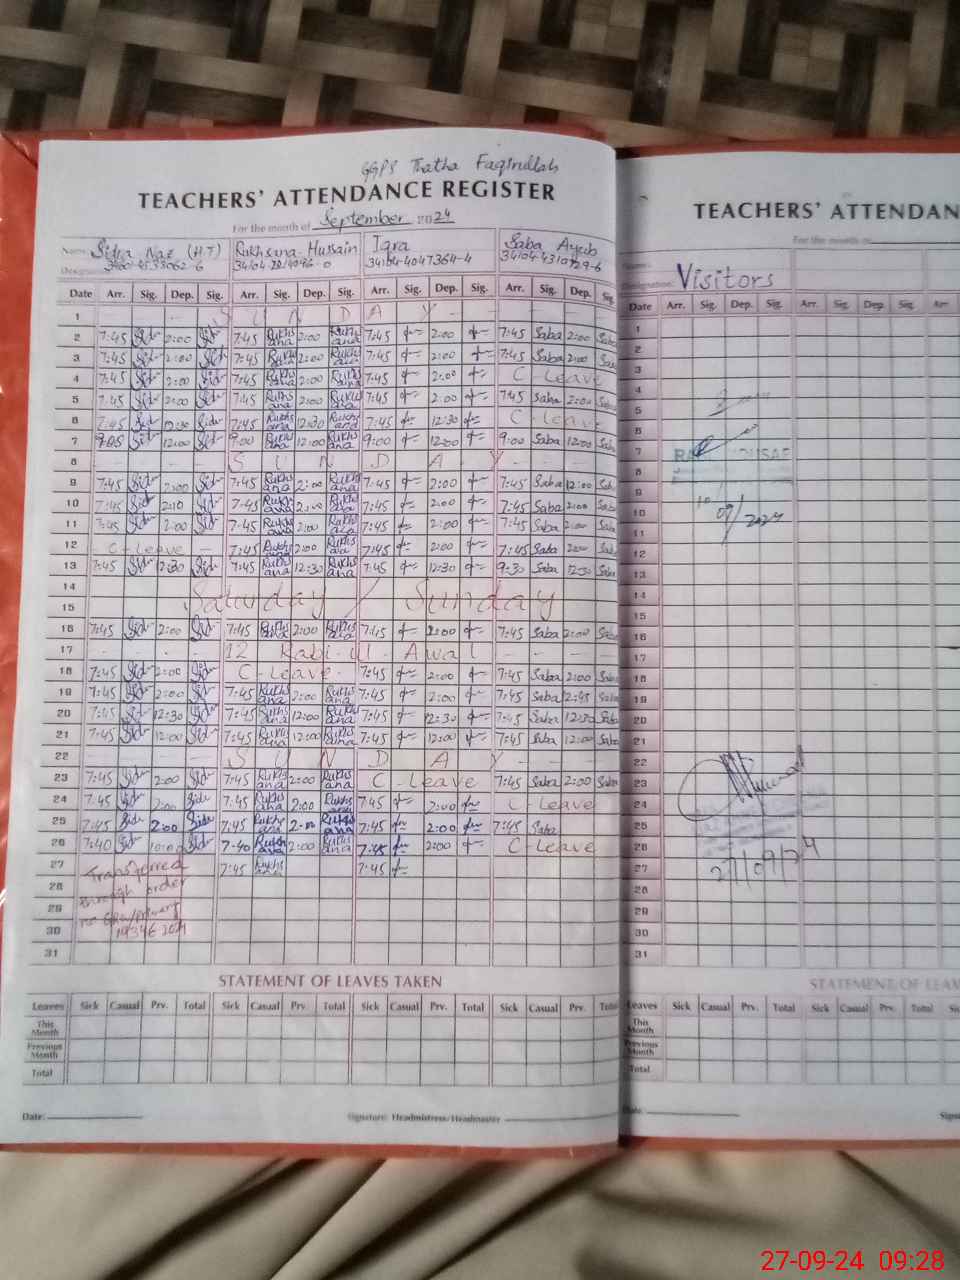 GGPS Thatha Faqirullah
TEACHERS' ATTENDANCE REGISTER
For the month of September 2024
Name Sidra Naz (H.T) Rukhsana Hussain Iqra Saba Ayub
34104-4047364-4
Date Arr. Sig. Dep. Sig. Arr. Sig. Dep. Sig. Arr. Sig. Dep. Sig. Arr. Sig. Dep. Sig.
1 SUNDAY
2 7:45 Sidr 2:00 Sidr 7:45 Rukhsana 2:00 Rukhsana 7:45 2:00 7:45 Saba 2:00 Saba
3 7:45 Sidr 2:00 Sidr 7:45 Rukhsana 2:00 Rukhsana 7:45 2:00 7:45 Saba 2:00 Saba
4 7:45 Sidr 2:00 Sidr 7:45 Rukhsana 2:00 Rukhsana 7:45 2:00 C Leave
5 7:45 Sidr 2:00 Sidr 7:45 Rukhsana 2:00 Rukhsana 7:45 2:00 7:45 Saba 2:00 Saba
6 7:45 Sidr 12:30 Sidr 7:45 Rukhsana 12:30 Rukhsana 7:45 12:30 C-leave
7 Sidr 12:00 Sidr 9:00 Rukhsana 12:00 Rukhsana 9:00 12:00 9:00 Saba 12:00 Saba
8 SUNDAY
9 7:45 Sidr 2:00 Sidr 7:45 Rukhsana 2:00 Rukhsana 7:45 2:00 7:45 Saba 12:00 Sab
10 7:45 Sidr 2:10 Sidr 7:45 Rukhsana 2:00 Rukhsana 7:45 2:00 7:45 Saba 2:00 Saba
11 7:45 Sidr 2:00 Sidr 7:45 Rukhsana 2:00 Rukhsana 7:45 2:00 7:45 Saba 2:00 Saba
12 C-Leave 7:45 Rukhsana 2:00 Rukhsana 7:45 2:00 7:45 Saba 2:00 Saba
13 7:45 Sidr 12:30 Sidr 7:45 Rukhsana 12:30 Rukhsana 7:45 12:30 9:30 Saba 12:30 Saba
14
15 Saturday / Sunday
16 7:45 Sidr 2:00 Sidr 7:45 Rukhsana 2:00 Rukhsana 7:45 2:00 7:45 Saba 2:00 Saba
17 12 Rabi-ul-Awal
18 7:45 Sidr 2:00 Sidr C-Leave 7:45 2:00 7:45 Saba 2:00 Saba
19 7:45 Sidr 2:00 Sidr 7:45 Rukhsana 2:00 Rukhsana 7:45 2:00 7:45 Saba 2:45 Saba
20 7:45 Sidr 12:30 Sidr 7:45 Rukhsana 12:00 Rukhsana 7:45 12:30 7:45 Saba 12:30 Saba
21 7:45 Sidr 12:00 Sidr 7:45 Rukhsana 12:00 Rukhsana 7:45 12:00 7:45 Saba 12:00 Saba
22 SUNDAY
23 7:45 Sidr 2:00 Sidr 7:45 Rukhsana 2:00 Rukhsana C-Leave 7:45 Saba 2:00 Saba
24 7:45 Sidr 2:00 Sidr 7:45 Rukhsana 2:00 Rukhsana 7:45 2:00 C-Leave
25 7:45 Sidr 2:00 Sidr 7:45 Rukhsana 2:00 Rukhsana 7:45 2:00 7:45 Saba
26 7:40 Sidr 10:00 Sidr 7:40 Rukhsana 2:00 Rukhsana 7:45 2:00 C-Leave
27 Transferred 7:45 Rukhsana 7:45
28 through order
29
30
31
STATEMENT OF LEAVES TAKEN
Leaves Sick Casual Prv. Total Sick Casual Prv. Total Sick Casual Prv. Total Sick Casual Prv. Total
This Month
Previous Month
Total
Date: Signature: Headmistress/Headmaster
TEACHERS' ATTENDAN
For the month of
Designation: Visitors
Date Arr. Sig. Dep. Sig. Arr. Sig. Dep. Sig. Arr
1
2
3
4
5
6
7
8
9
10 10/09/2024
11
12
13
14
15
16
17
18
19
20
21
22
23
24
25
26
27 27/09/24
28
29
30
31
STATEMENT OF LEAV
Leaves Sick Casual Prv. Total Sick Casual Prv. Total
This Month
Previous Month
Total
Date: Signa
27-09-24 09:28